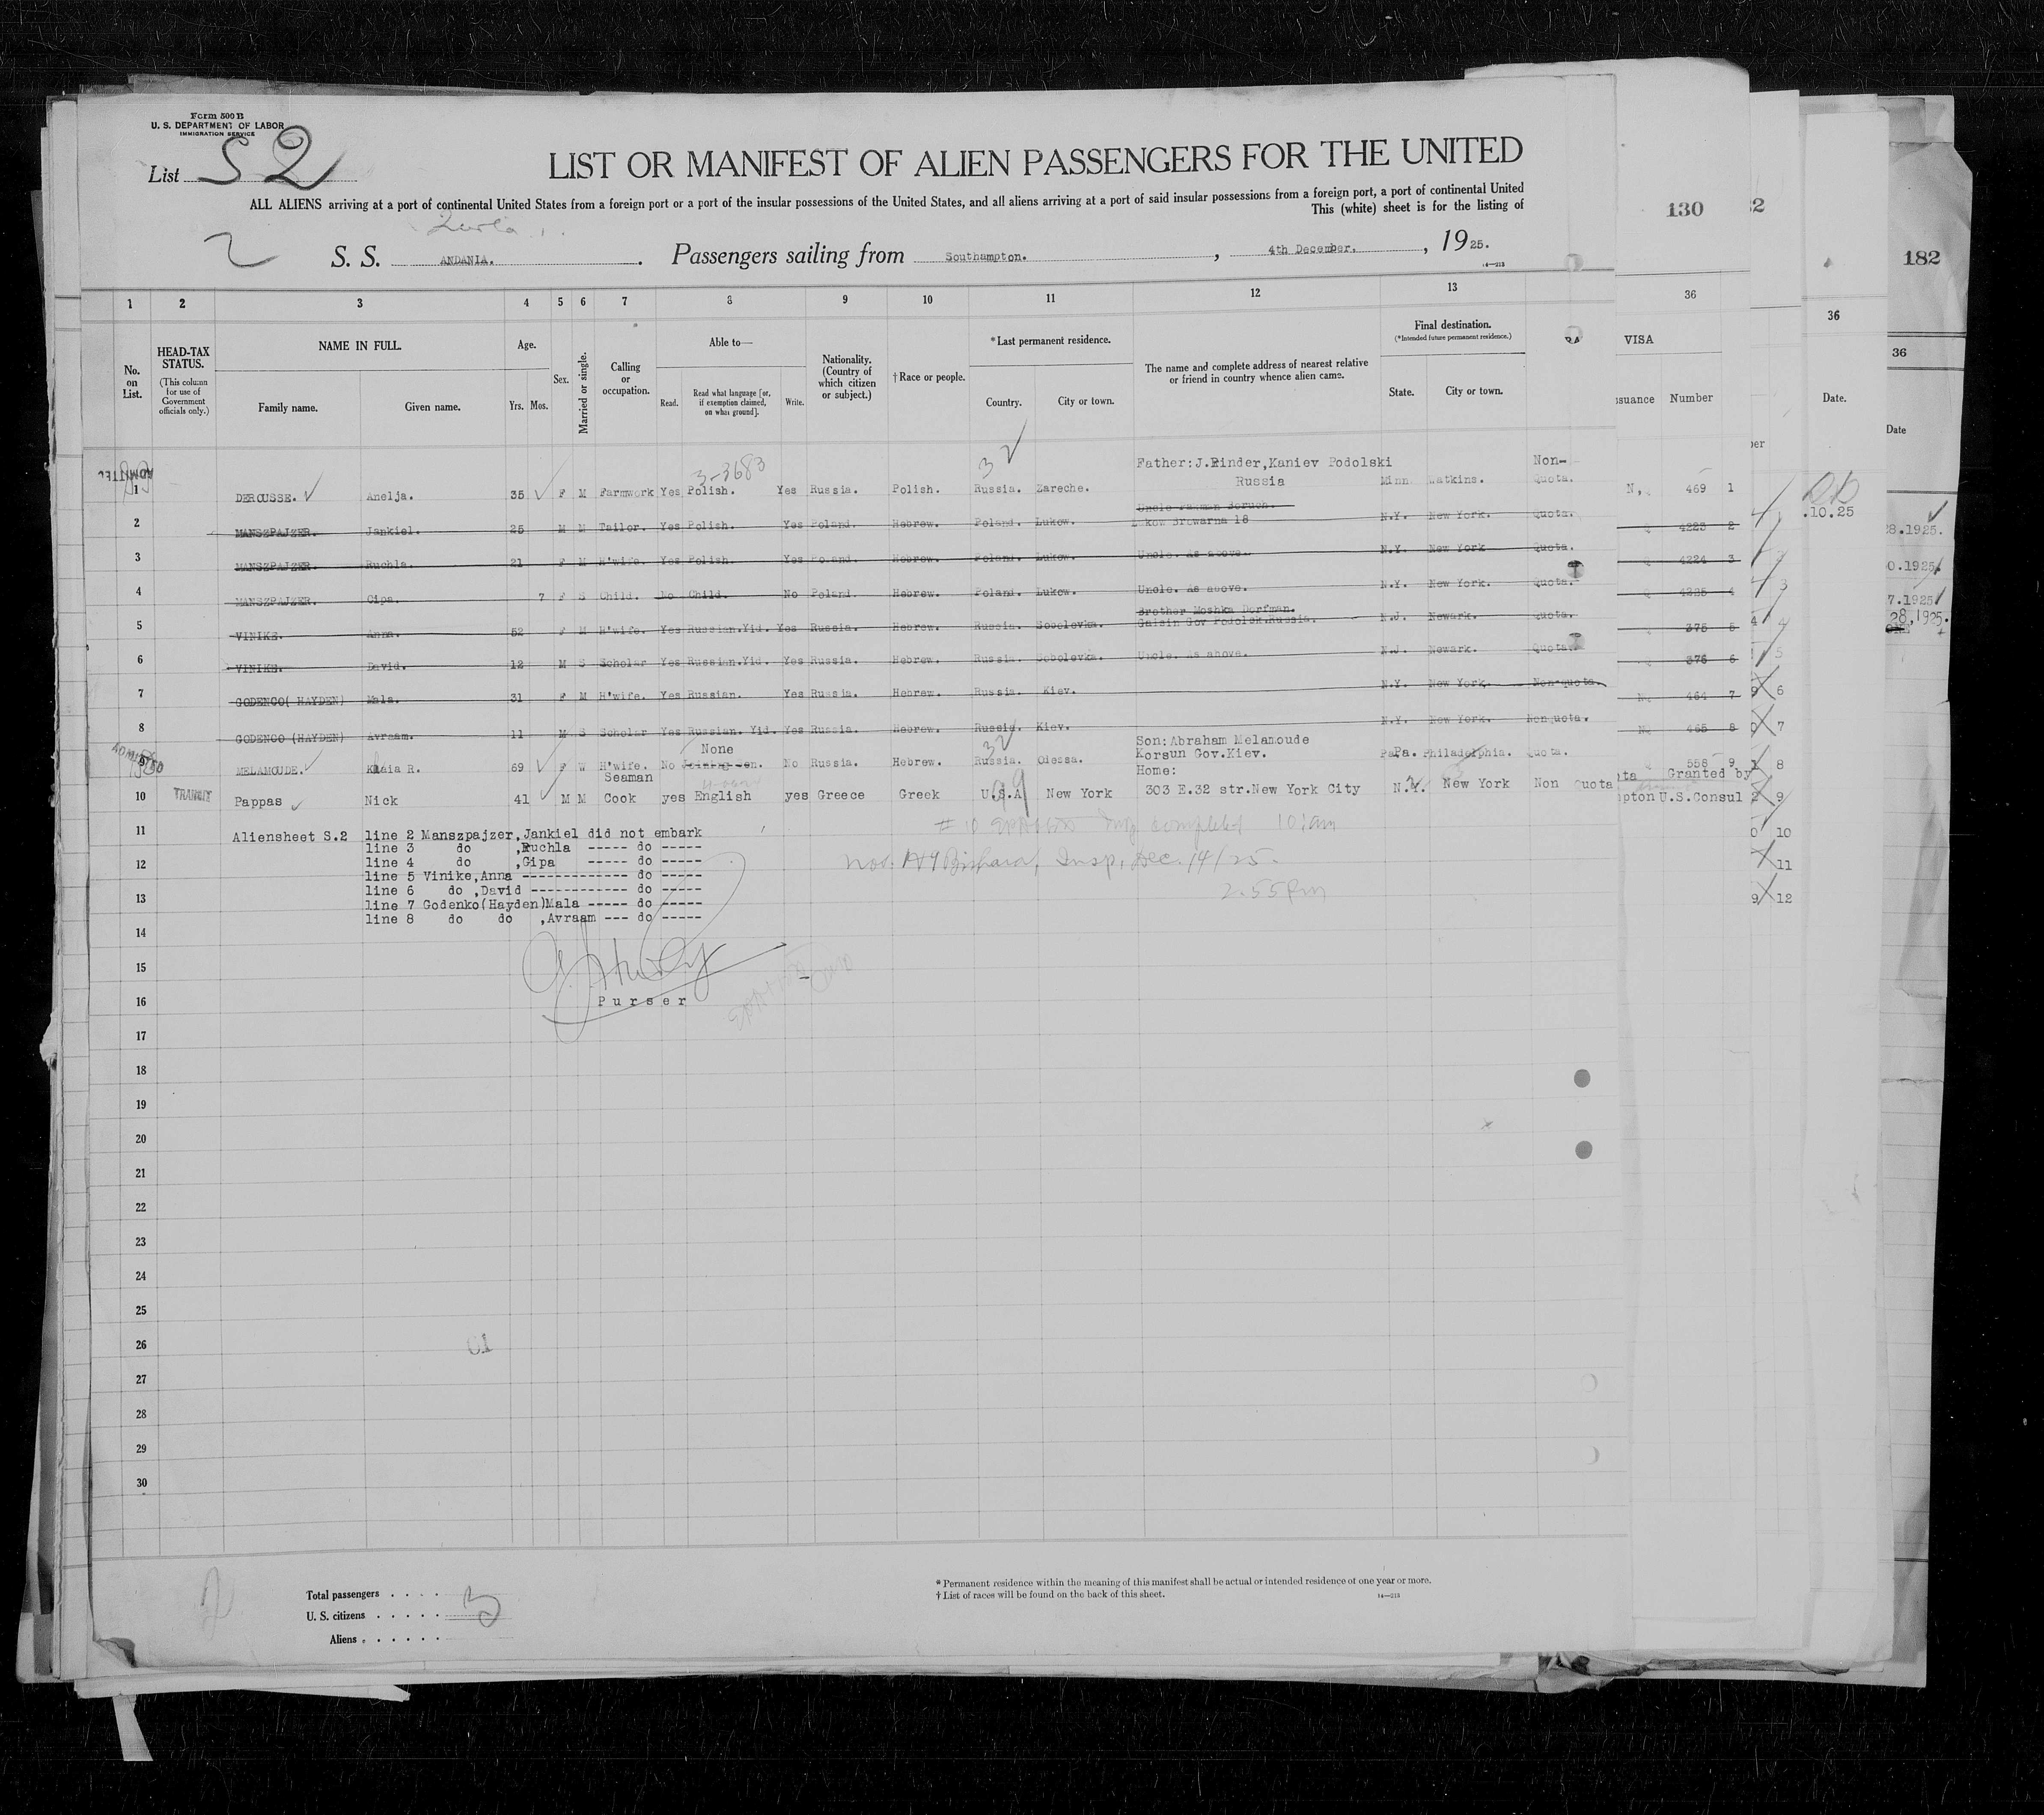 Form 500 B
U. S. DEPARTMENT OF LABOR
IMMIGRATION SERVICE
List S 2
LIST OR MANIFEST OF ALIEN PASSENGERS FOR THE UNITED
ALL ALIENS arriving at a port of continental United States from a foreign port or a port of the insular possessions of the United States, and all aliens arriving at a port of said insular possessions from a foreign port, a port of continental United
This (white) sheet is for the listing of
130 32
182
2 S. S. ANDANIA. Passengers sailing from Southampton. , 4th December. , 1925.
16—213
1 2 3 4 5 6 7 8 9 10 11 12 13 36 36 36
No. on List.
HEAD-TAX STATUS.
(This column for use of Government officials only.)
NAME IN FULL.
Family name. Given name.
Age.
Yrs. Mos.
Sex.
Married or single.
Calling or occupation.
Able to—
Read. Read what language [or, if exemption claimed, on what ground]. Write.
Nationality. (Country of which citizen or subject.)
†Race or people.
*Last permanent residence.
Country. City or town.
The name and complete address of nearest relative or friend in country whence alien came.
Final destination.
(*Intended future permanent residence.)
State. City or town.
VISA
ssuance Number
Date.
Date
ADMITTED
3-3683
Father:J.Rinder,Kaniev Podolski Non-
1 DEROUSSE. Anelja. 35 F M Farmwork Yes Polish. Yes Russia. Polish. Russia. Zareche. Russia Minn. Watkins. Quota. N, 469 1
.10.25
Uncle Boruch.
2 MANSZPAJZER. Jankiel. 25 M M Tailor. Yes Polish. Yes Poland. Hebrew. Poland. Lukow. Lukow Browarna 18 N.Y. New York. Quota. 4223 2
8.1925.
3 MANSZPAJZER. Ruchla. 21 F M H'wife. Yes Polish. Yes Poland. Hebrew. Poland. Lukow. Uncle. As above. N.Y. New York Quota. 4224 3
0.1925
4 MANSZPAJZER. Gipa. 7 F S Child. No Child. No Poland. Hebrew. Poland. Lukow. Uncle. As above. N.Y. New York. Quota. 4225 4
7.1925
Brother Moshka Dorfman.
5 VINIKE. Anna. 52 F M H'wife. Yes Russian.Yid. Yes Russia. Hebrew. Russia. Sobolevka. Gaisin Gov Podolsk.Russia. N.J. Newark. Quota. 375 5
28,1925.
6 VINIKE. David. 12 M S Scholar Yes Russian.Yid. Yes Russia. Hebrew. Russia. Sobolevka. Uncle. As above. N.J. Newark. Quota. 376 6
7 GODENCO( HAYDEN) Mala. 31 F M H'wife. Yes Russian. Yes Russia. Hebrew. Russia. Kiev. N.Y. New York. Non-quota. 464 7
8 GODENCO (HAYDEN) Avraam. 11 M S Scholar Yes Russian. Yid. Yes Russia. Hebrew. Russia. Kiev. N.Y. New York. Nonquota. 465 8
ADMITTED
None
Son:Abraham Melamoude
Korsun Gov.Kiev.
9 MELAMOUDE. Klaia R. 69 F W H'wife. No No Russia. Hebrew. Russia. Odessa. Pa. Philadelphia. Quota. 558 9
Home:
Seaman
Granted by
10 TRANSIT Pappas Nick 41 M M Cook yes English yes Greece Greek U.S.A New York 303 E.32 str.New York City N.Y. New York Non quota U.S.Consul
11 Aliensheet S.2 line 2 Manszpajzer,Jankiel did not embark
line 3 do ,Ruchla ----- do -----
12 line 4 do ,Gipa ----- do -----
line 5 Vinike,Anna ------------- do -----
line 6 do ,David ------------ do -----
13 line 7 Godenko(Hayden)Mala ----- do -----
line 8 do do ,Avraam --- do -----
completed 10 am
Insp, Dec. 14/25.
2.55 Pm
14
15
16 Purser
17
18
19
20
21
22
23
24
25
26
27
28
29
30
Total passengers . . . .
U. S. citizens . . . . . 3
Aliens . . . . . .
* Permanent residence within the meaning of this manifest shall be actual or intended residence of one year or more.
† List of races will be found on the back of this sheet.
14—213